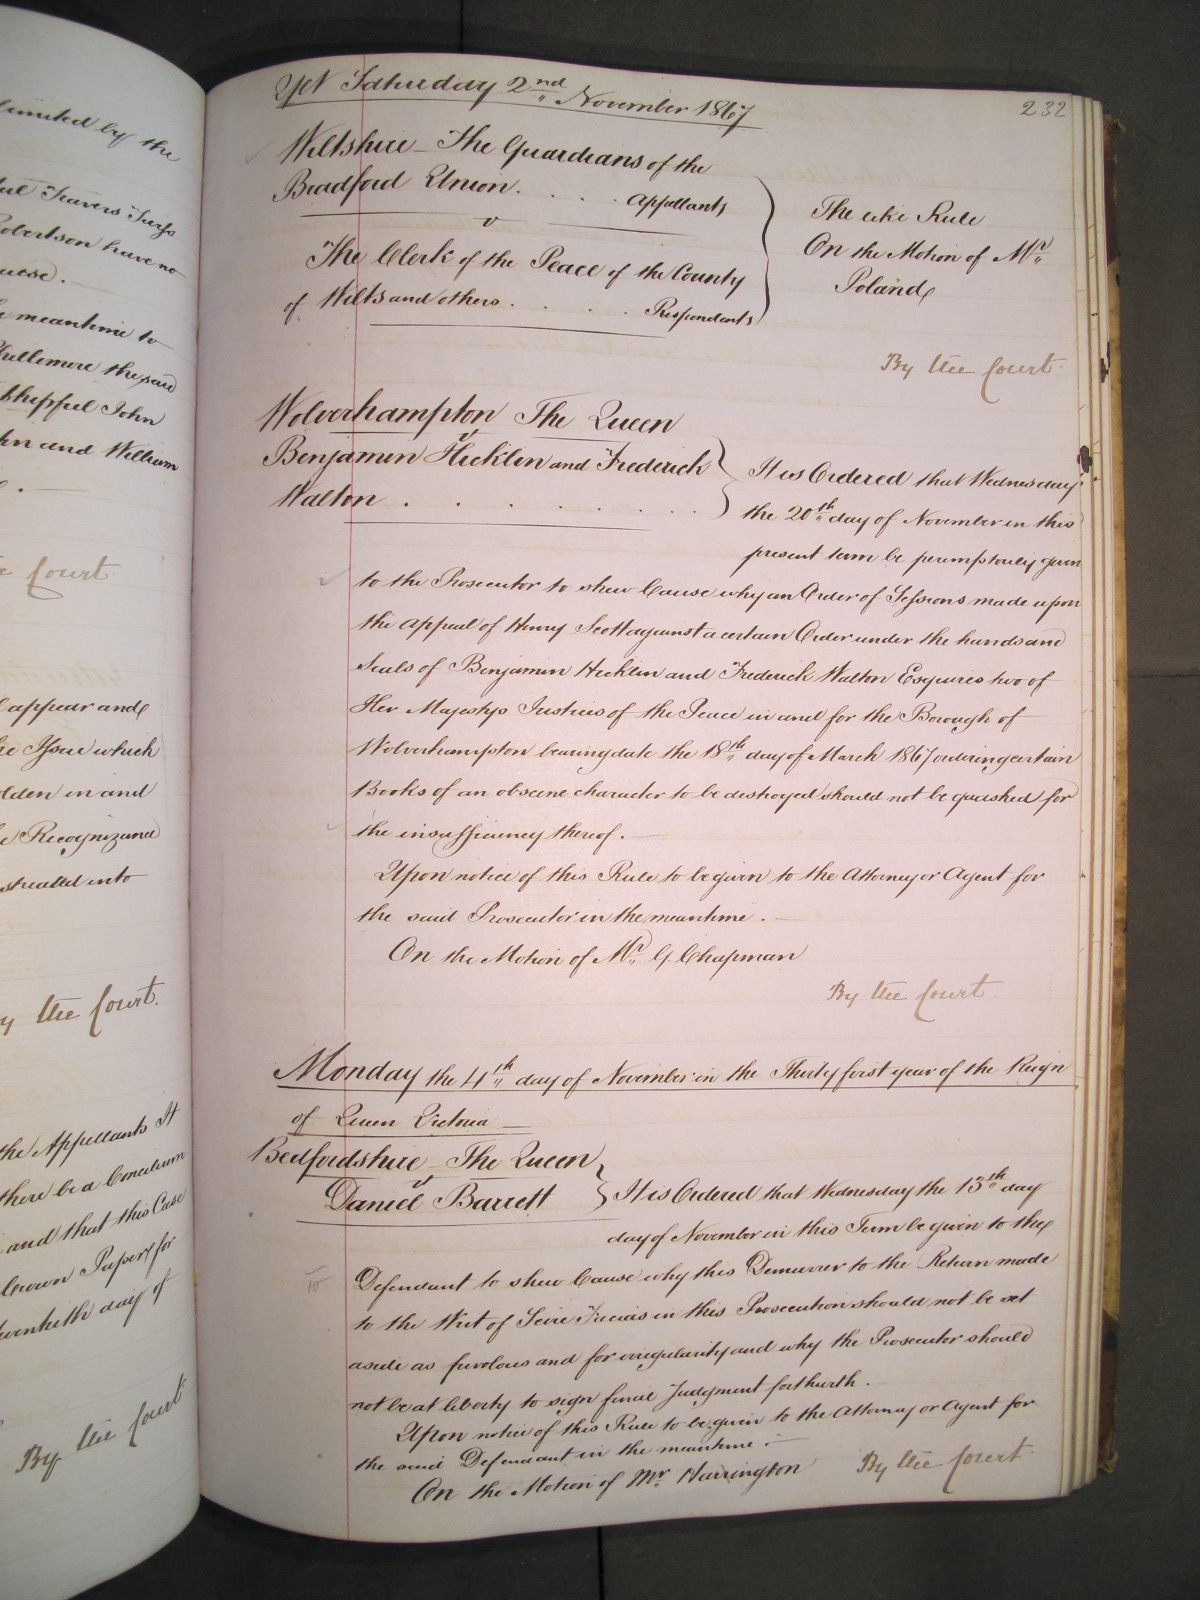 limited by the
Travers Twiss
Robertson have no
cause.
meantime to
Phillimore the said
John
and William
Court
appear and
Issue which
in and
Recognizance
estreated into
By the Court.
the Appellants It
there be a Concilium
and that this Case
Crown Paper for
twentieth day of
By the Court
Yet Saturday 2nd November 1867
232
Wiltshire – The Guardians of the
Bradford Union . . . . Appellants
v
The Clerk of the Peace of the County
of Wilts and others . . . . Respondents
The like Rule
On the Motion of Mr
Poland
By the Court.
Wolverhampton The Queen
v
Benjamin Hicklin and Frederick
Walton . . . . . . . . .
It is Ordered that Wednesday
the 20th day of November in this
present term be peremptorily given
to the Prosecutor to shew Cause why an Order of Sessions made upon
the Appeal of Henry Scott against a certain Order under the hands and
Seals of Benjamin Hicklin and Frederick Walton Esquires two of
Her Majestys Justices of the Peace in and for the Borough of
Wolverhampton bearing date the 18th day of March 1867 ordering certain
Books of an obscene character to be destroyed should not be quashed for
the insufficiency thereof. –
Upon notice of this Rule to be given to the Attorney or Agent for
the said Prosecutor in the meantime . –
On the Motion of Mr G. Chapman
By the Court.
Monday the 4th day of November in the Thirty first year of the Reign
of Queen Victoria –
Bedfordshire – The Queen
v
Daniel Barrett
It is Ordered that Wednesday the 13th day
day of November in this Term be given to the
Defendant to shew Cause why this Demurrer to the Return made
to the Writ of Scire Facias in this Prosecution should not be set
aside as frivolous and for irregularity and why the Prosecutor should
not be at liberty to sign final Judgment forthwith . –
Upon notice of this Rule to be given to the Attorney or Agent for
the said Defendant in the meantime . –
On the Motion of Mr Harrington
By the Court.